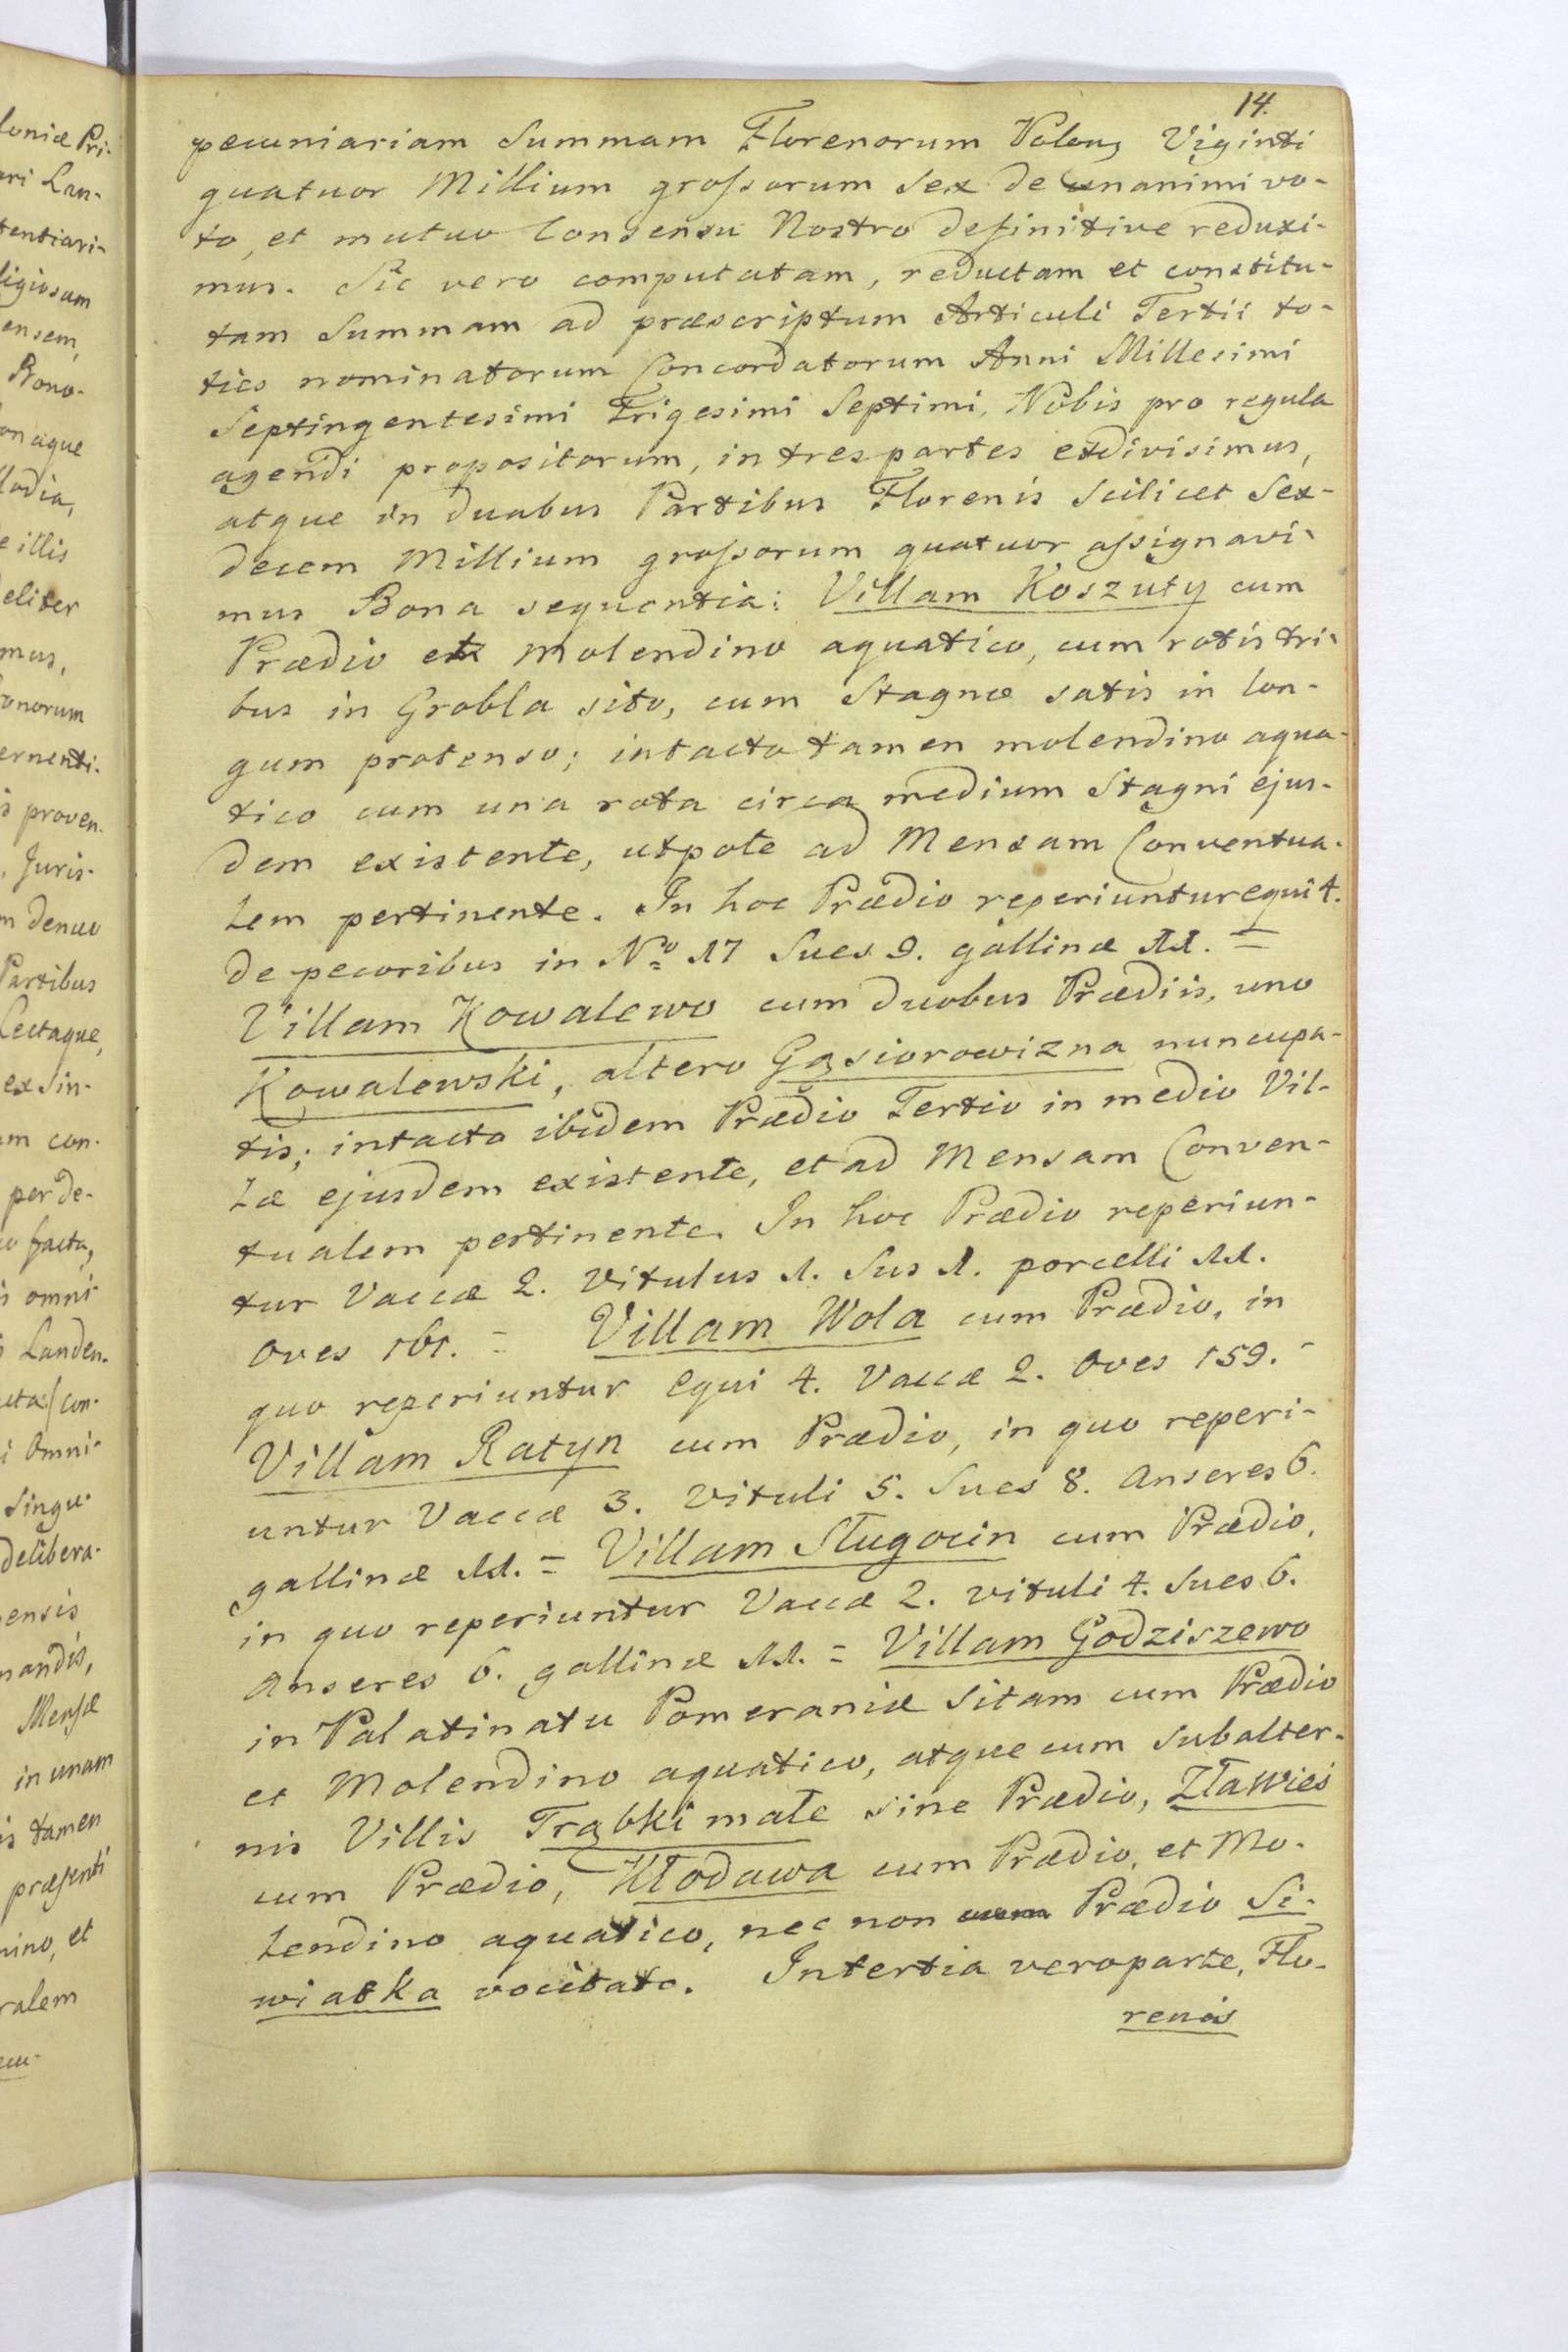 14.
loniæ Pri-
ari Lan-
tentiari-
ligiosam
ensem,
Bono-
onaque
lodia,
e illis
eliter
mus,
onorum
ernenti-
s proven-
, Juris-
m denuo
Partibus
Lectaque,
ex sin-
am con-
per de-
o facta,
s omni-
s Landen-
cta con-
i Omni-
Singu-
delibera-
ensis
nandis,
Mensæ
in unam
is tamen
præsenti
nino, et
ralem
ecu-
pecuniariam Summam Florenorum Polon, Viginti
quatuor Millium grossorum Sex de unanimi vo-
to, et mutuo Consensu Nostro definitive reduxi-
mus. Sic vero computatam, reductam et constitu-
tam Summam ad præscriptum Articuli Tertii to-
ties nominatorum Concordatorum Anni Millesimi
Septingentesimi Trigesimi Septimi, Nobis pro regula
agendi propositorum, in tres partes exdivisimus,
atque in duabus Partibus Florenis Scilicet Sex-
decem Millium grossorum quatuor assignavi-
mus Bona sequentia: Villam Koszuty cum
Prædio et Molendino aquatico, cum rotis tri-
bus in Grobla sito, cum Stagno satis in lon-
gum protenso; intacto tamen molendino aqua-
tico cum una rota circa medium Stagni ejus-
dem existente, utpote ad Mensam Conventua-
lem pertinente. In hoc Prædio reperiuntur equi 4.
de pecoribus in Nro 17 Sues 9. gallinæ 11. =
Villam Kowalewo cum duobus Prædiis, uno
Kowalewski, altero Gąsiorowizna nuncupa-
tis; intacto ibidem Prædio Tertio in medio Vil-
læ ejusdem existente, et ad Mensam Conven-
tualem pertinente. In hoc Prædio reperiun-
tur Vaccæ 2. Vitulus 1. Sus 1. porcelli 11.
Oves 161. = Villam Wola cum Prædio, in
quo reperiuntur Equi 4. Vaccæ 2. Oves 159. -
Villam Ratyn cum Prædio, in quo reperi-
untur Vaccæ 3. Vituli 5. Sues 8. Anseres 6.
gallinæ 11. = Villam Sługocin cum Prædio,
in quo reperiuntur Vaccæ 2. vituli 4. Sues 6.
Anseres 6. gallinæ 11. = Villam Godziszewo
in Palatinatu Pomeraniæ Sitam cum Prædio
et Molendino aquatico, atque cum Subalter-
nis Villis Trąbki małe sine Prædio, Zławieś
cum Prædio, Kłodawa cum Prædio, et Mo-
lendino aquatico, nec non Prædio Si-
wiatka vocitato. In tertia vero parte, Flo-
renis